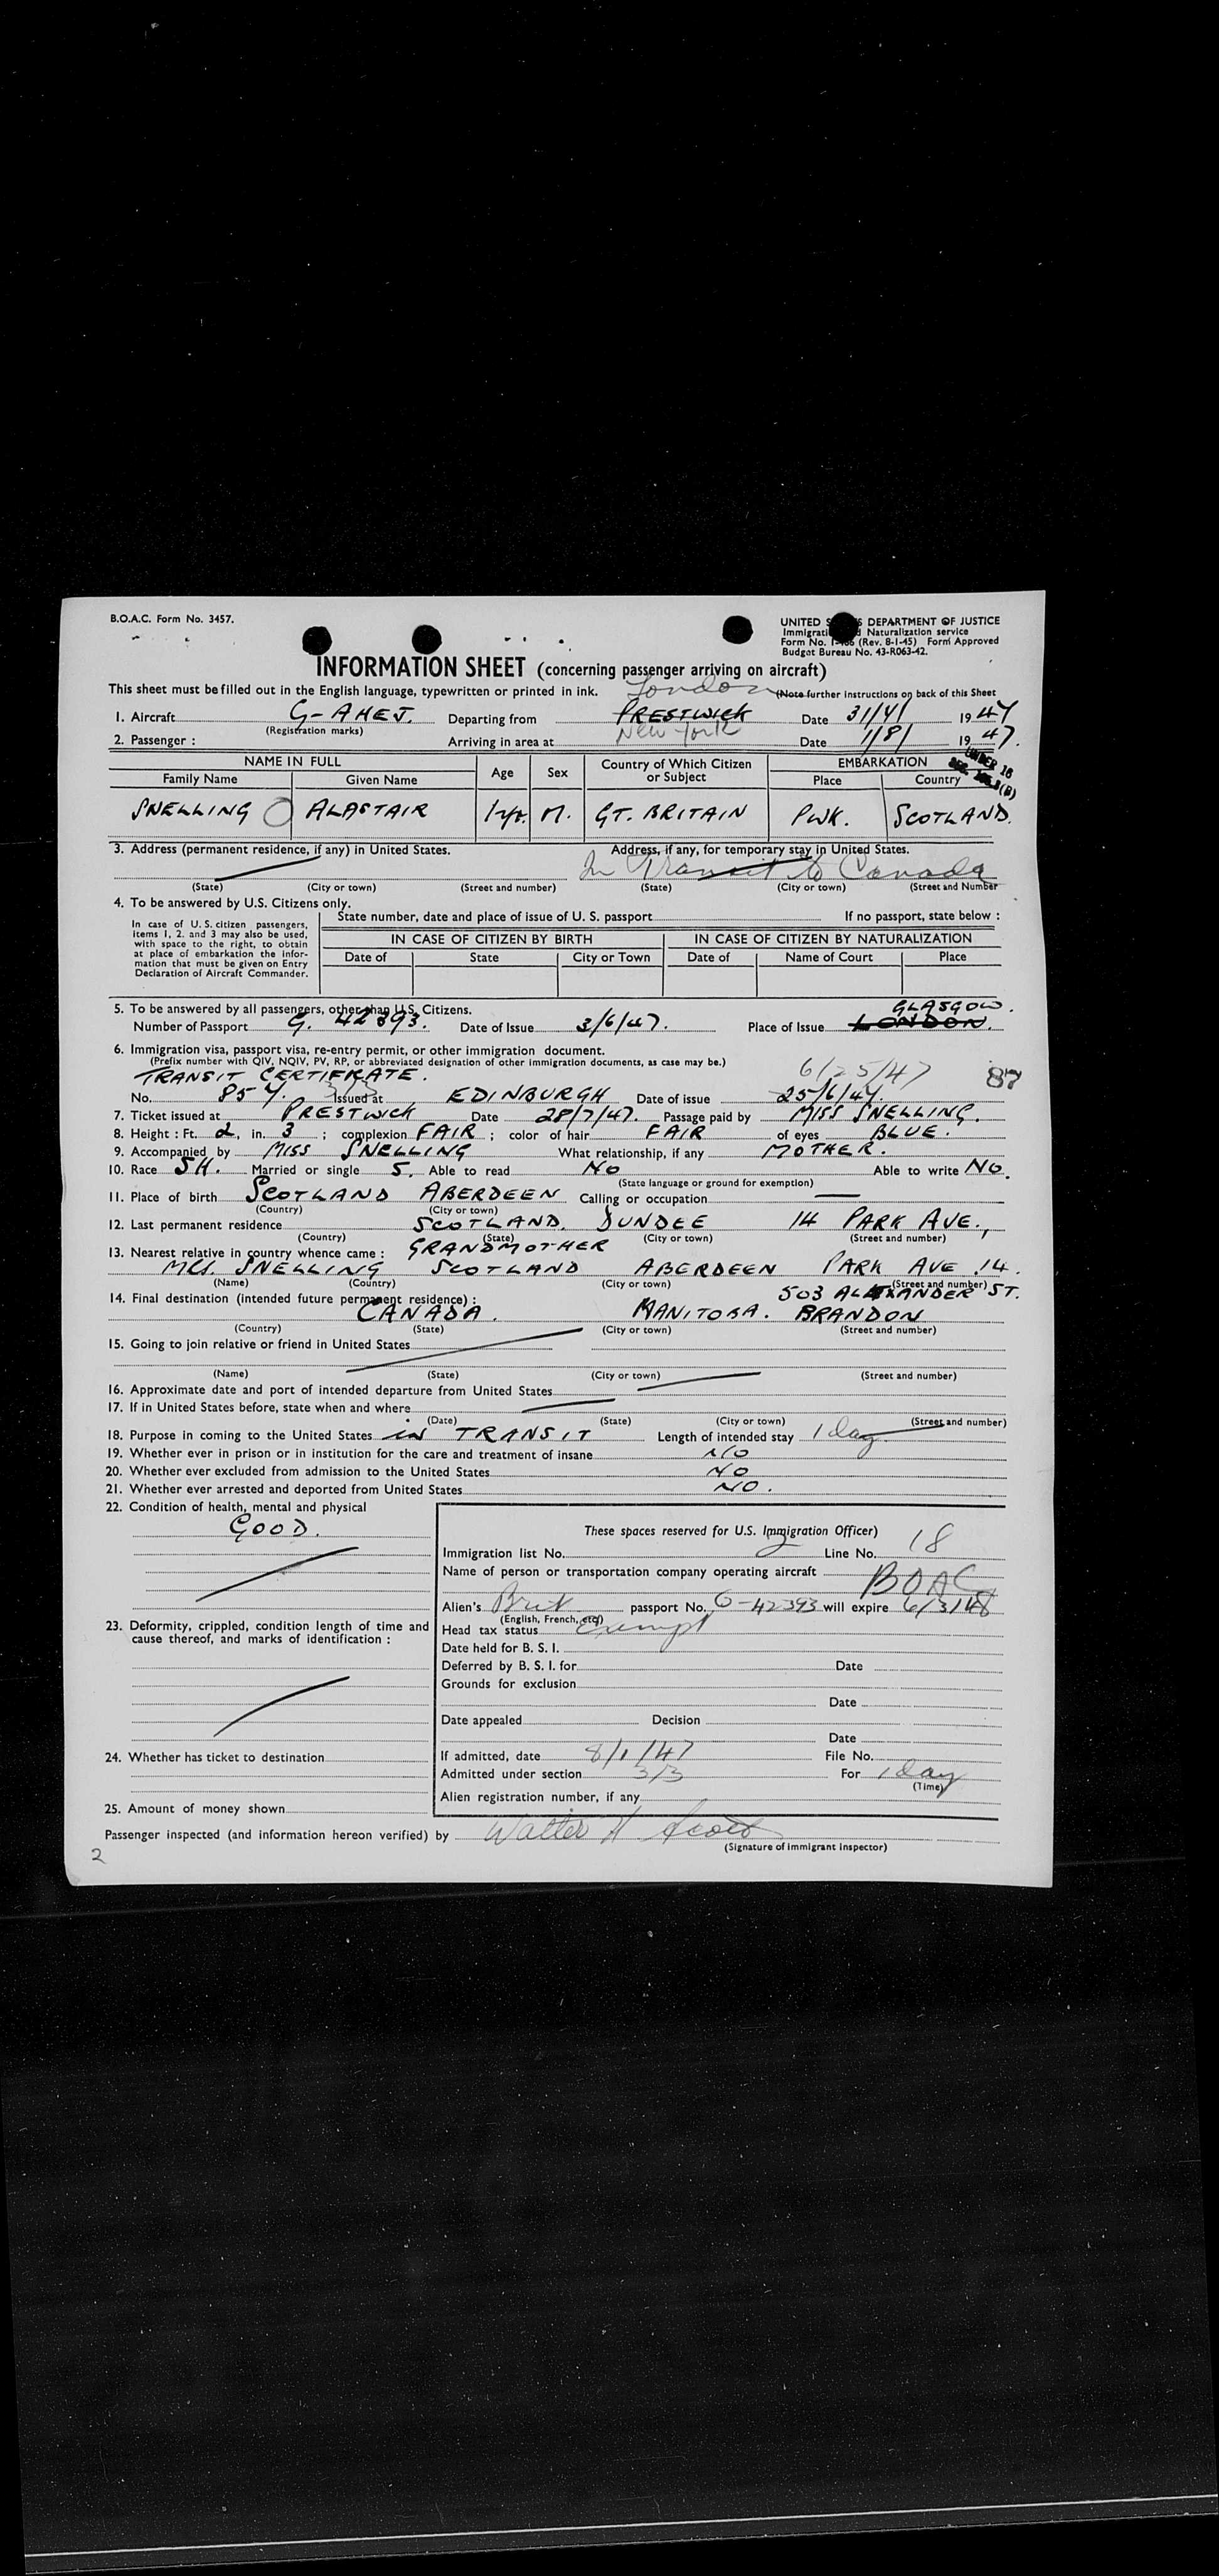 B.O.A.C. Form No. 3457.
UNITED S S DEPARTMENT OF JUSTICE
Immigrati d Naturalization service
Form No. (Rev. 8-1-45) Form Approved
Budget Bureau No. 43-R063-42.
INFORMATION SHEET (concerning passenger arriving on aircraft)
This sheet must be filled out in the English language, typewritten or printed in ink. London (Note further instructions on back of this Sheet
1. Aircraft G-AHEJ. Departing from PRESTWICK Date 31/7/ 1947
(Registration marks)
2. Passenger : Arriving in area at New York Date 1/8/ 1947.
NAME IN FULL Age Sex Country of Which Citizen or Subject EMBARKATION
UNDER 16
Family Name Given Name Place Country
SNELLING ALASTAIR 1 yr. M. GT. BRITAIN PWK. SCOTLAND.
3. Address (permanent residence, if any) in United States. Address, if any, for temporary stay in United States.
In Transit to Canada
(State) (City or town) (Street and number) (State) (City or town) (Street and Number
4. To be answered by U.S. Citizens only.
In case of U.S. citizen passengers, items 1, 2. and 3 may also be used, with space to the right, to obtain at place of embarkation the infor- mation that must be given on Entry Declaration of Aircraft Commander.
State number, date and place of issue of U. S. passport If no passport, state below :
IN CASE OF CITIZEN BY BIRTH IN CASE OF CITIZEN BY NATURALIZATION
Date of State City or Town Date of Name of Court Place
5. To be answered by all passengers, other than U.S. Citizens. GLASGOW.
Number of Passport G. 42393. Date of Issue 3/6/47. Place of Issue LONDON.
6. Immigration visa, passport visa, re-entry permit, or other immigration document.
(Prefix number with QIV, NQIV, PV, RP, or abbreviated designation of other immigration documents, as case may be.) 6/25/47 87
TRANSIT CERTIFICATE.
No. 857. Issued at EDINBURGH Date of issue 25/6/47.
7. Ticket issued at PRESTWICK Date 28/7/47. Passage paid by MISS SNELLING.
8. Height : Ft. 2, in. 3 ; complexion FAIR ; color of hair FAIR of eyes BLUE.
9. Accompanied by MISS SNELLING What relationship, if any MOTHER.
10. Race SH. Married or single S. Able to read NO Able to write NO.
(State language or ground for exemption)
11. Place of birth SCOTLAND ABERDEEN Calling or occupation
(Country) (City or town)
12. Last permanent residence SCOTLAND. DUNDEE 14 PARK AVE.,
(Country) (State) (City or town) (Street and number)
13. Nearest relative in country whence came : GRANDMOTHER
MRS. SNELLING SCOTLAND ABERDEEN PARK AVE 14.
(Name) (Country) (City or town) (Street and number)
14. Final destination (intended future permanent residence) : 503 ALEXANDER ST.
CANADA. MANITOBA. BRANDON
(Country) (State) (City or town) (Street and number)
15. Going to join relative or friend in United States
(Name) (State) (City or town) (Street and number)
16. Approximate date and port of intended departure from United States
17. If in United States before, state when and where
(Date) (State) (City or town) (Street and number)
18. Purpose in coming to the United States IN TRANSIT Length of intended stay 1 day
19. Whether ever in prison or in institution for the care and treatment of insane NO
20. Whether ever excluded from admission to the United States NO
21. Whether ever arrested and deported from United States NO.
22. Condition of health, mental and physical
GOOD.
23. Deformity, crippled, condition length of time and cause thereof, and marks of identification :
24. Whether has ticket to destination
25. Amount of money shown
These spaces reserved for U.S. Immigration Officer)
Immigration list No. 2 Line No. 18
Name of person or transportation company operating aircraft BOAC
Alien's Brit passport No. G-42393 will expire 6/3/48
(English, French, etc.)
Head tax status Exempt
Date held for B. S. I.
Deferred by B. S. I. for Date
Grounds for exclusion
Date
Date appealed Decision
Date
If admitted, date 8/1/47 File No.
Admitted under section 3/3 For 1 day
(Time)
Alien registration number, if any
Passenger inspected (and information hereon verified) by Walter H Scott
(Signature of Immigrant Inspector)
2